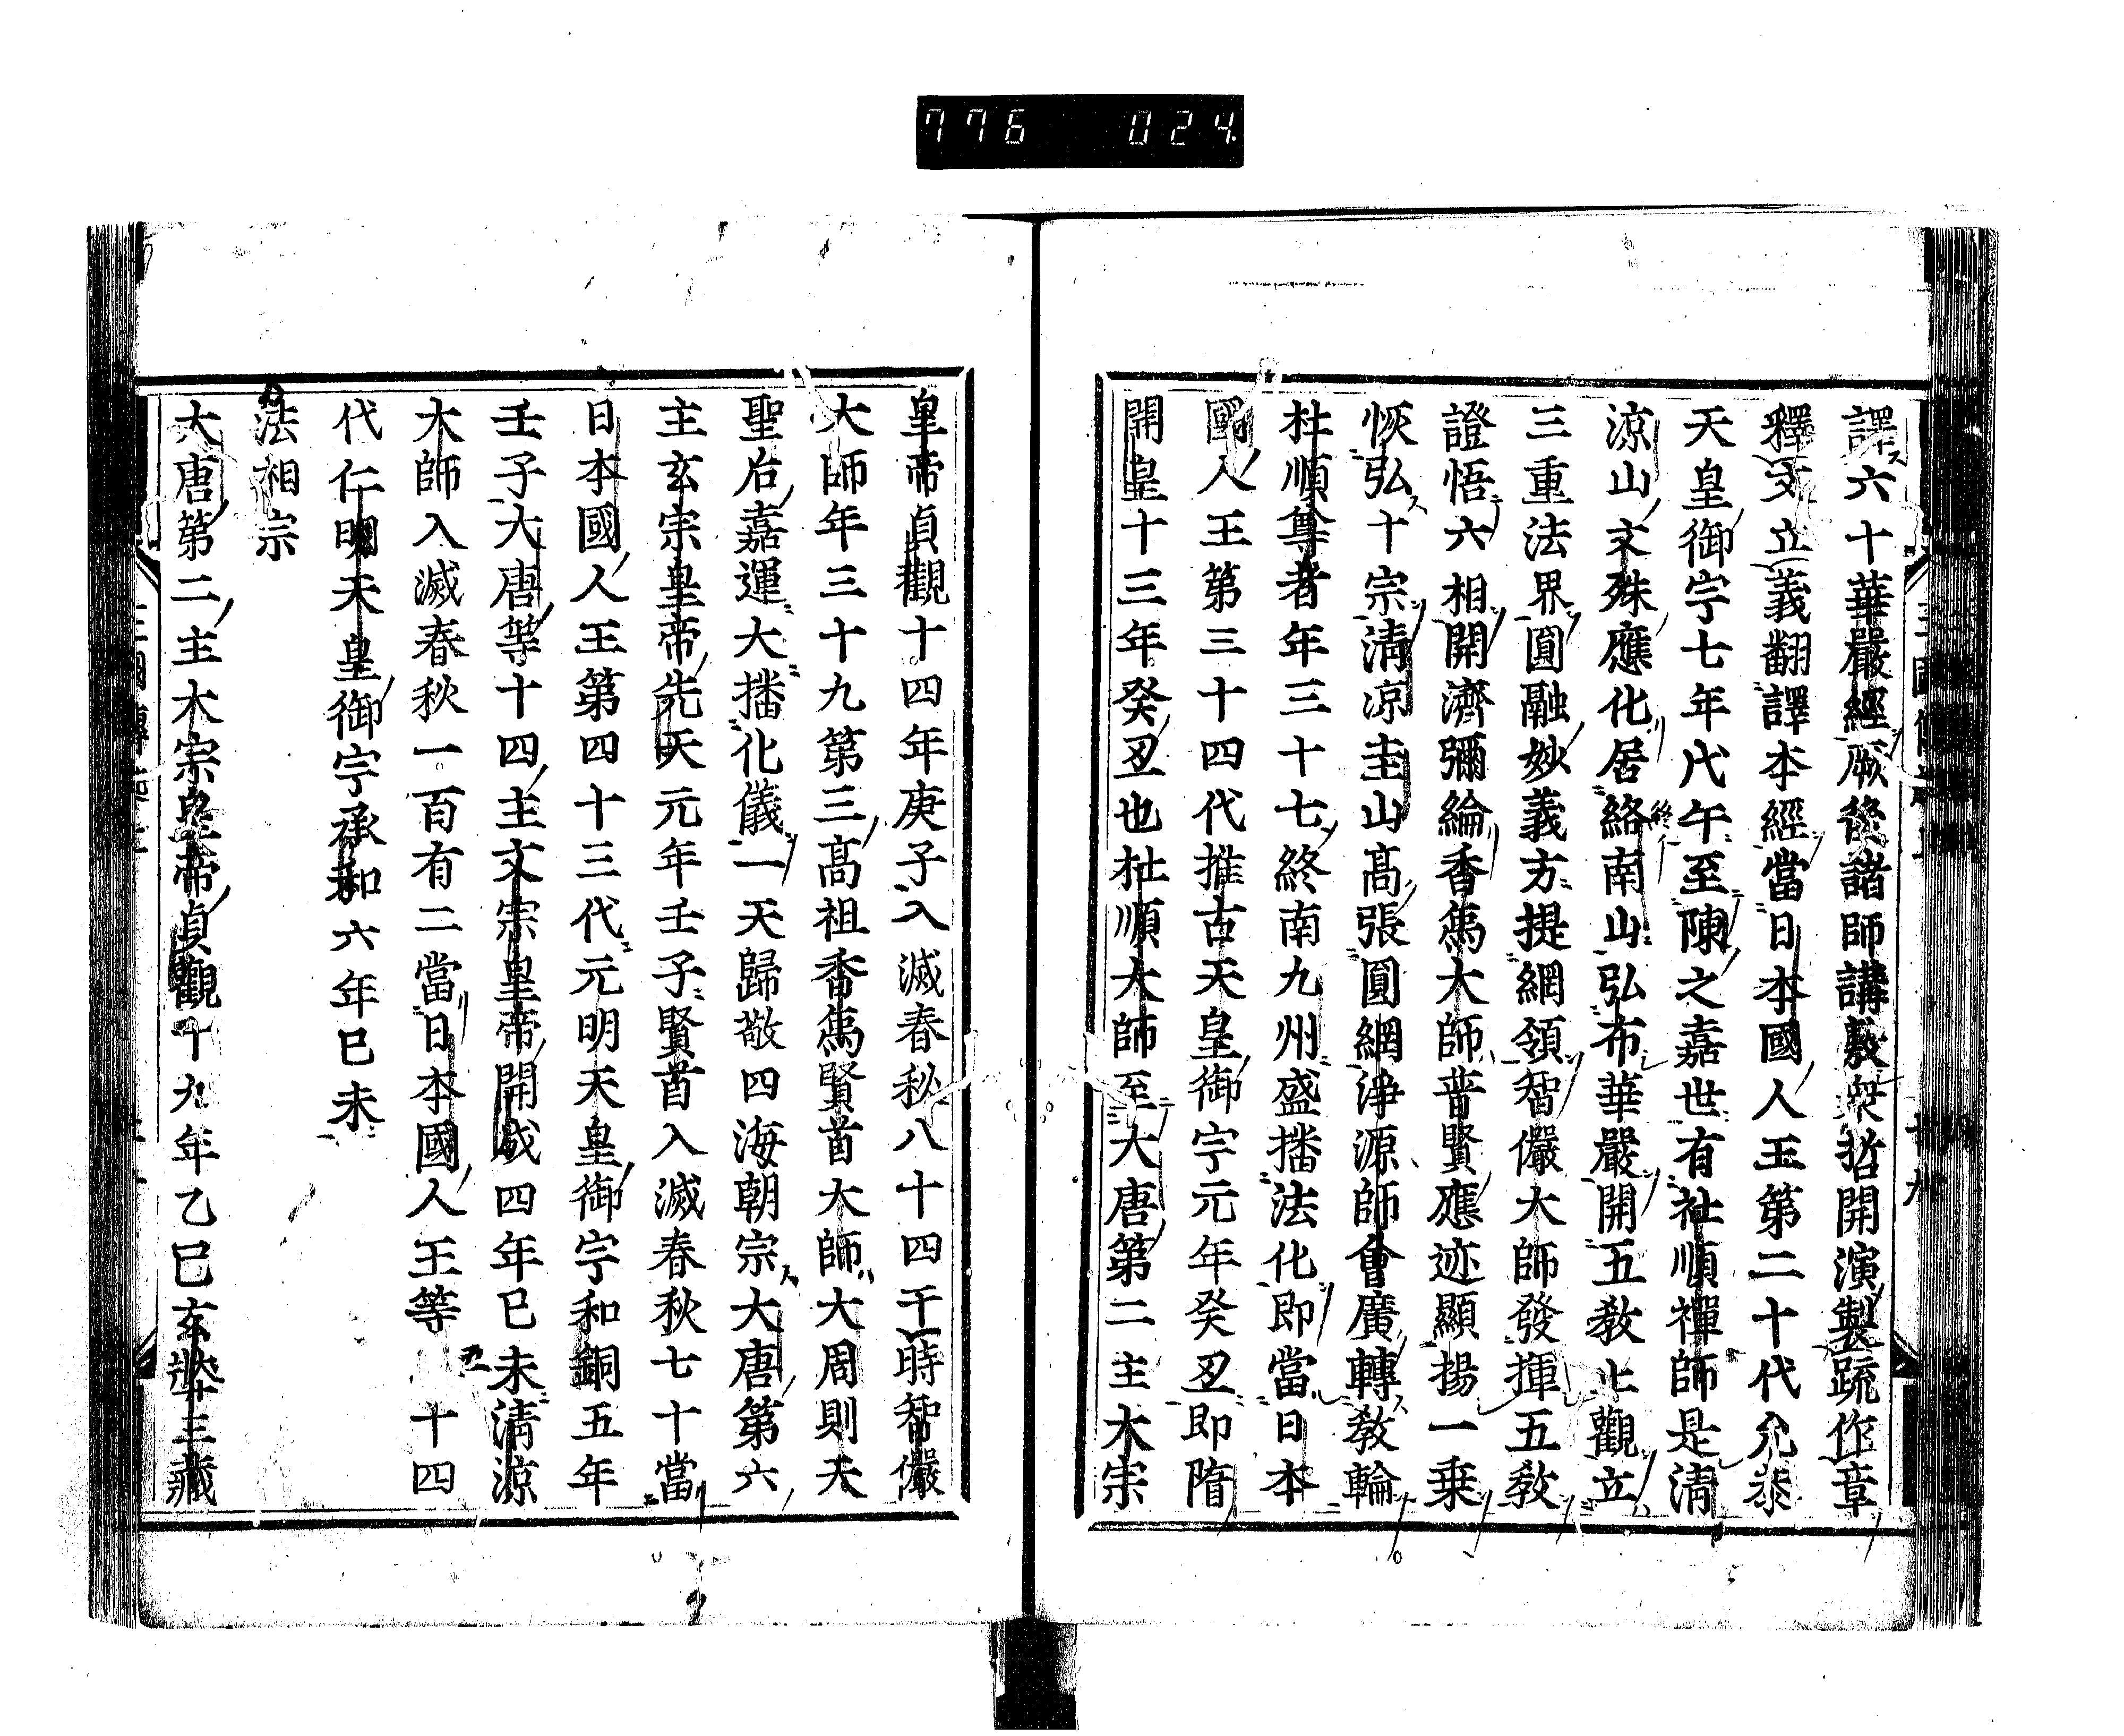 776 024
譯六十華嚴經厥後諸師講敷衆哲開演製疏作章
釋文立義翻譯本經當日本國人王第二十代允恭
天皇御宇七年戊午至陳之嘉世有杜順禪師是淸
涼山文殊應化居絡南山弘布華嚴開五敎止觀立
終
三重法界圓融妙義方提網領智儼大師發揮五敎
證悟六相開濟彌綸香爲大師普賢應迹顯揚一乗
恢弘十宗淸涼圭山高張圓網淨源師會廣轉敎輪
杜順尊者年三十七終南九州盛播法化即當日本
國人王第三十四代推古天皇御宇元年癸丑即隋
開皇十三年癸丑也杜順大師至大唐第二主太宗
皇帝貞觀十四年庚子入滅春秋八十四于時智儼
大師年三十九第三高祖香爲賢首大師大周則天
聖后嘉運大播化儀一天歸敬四海朝宗大唐第六
主玄宗皇帝先天元年壬子賢首入滅春秋七十當
日本國人王第四十三代元明天皇御宇和銅五年
壬子大唐第十四主文宗皇帝開成四年巳未淸涼
大師入滅春秋一百有二當日本國人王等五十四
代仁明天皇御宇承和六年巳未
法相宗
大唐第二主太宗皇帝貞觀十九年乙巳玄奘三藏